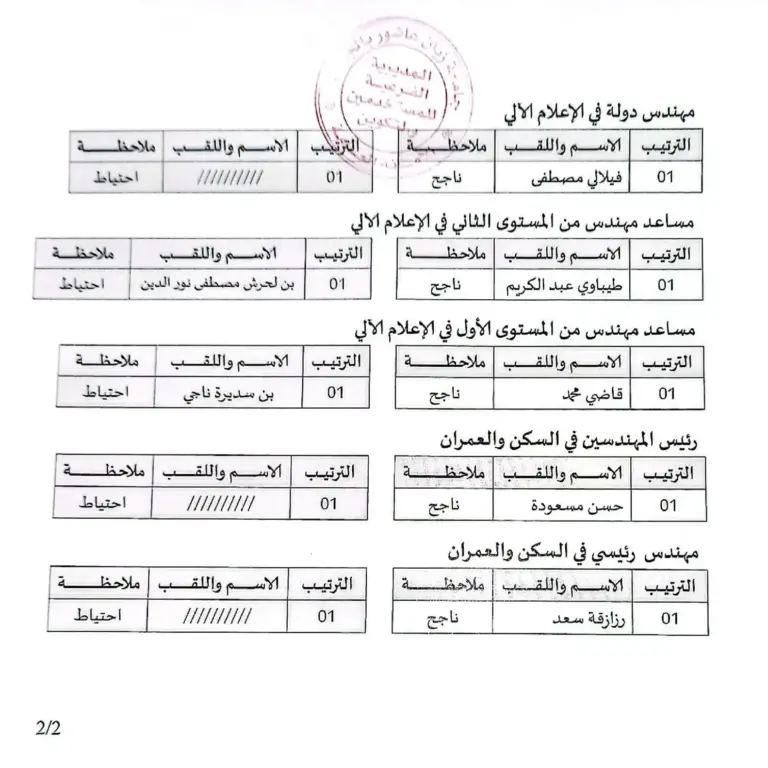 جامعة زيان عاشور بالجلفة
المديرية
الفرعية
للمستخدمين
والتكوين
مهندس دولة في الإعلام الآلي
الترتيب الاسم واللقب ملاحظة الترتيب الاسم واللقب ملاحظة
01 فيلالي مصطفى ناجح 01 ////////// احتياط
مساعد مهندس من المستوى الثاني في الإعلام الآلي
الترتيب الاسم واللقب ملاحظة الترتيب الاسم واللقب ملاحظة
01 طيباوي عبد الكريم ناجح 01 بن لحرش مصطفى نور الدين احتياط
مساعد مهندس من المستوى الأول في الإعلام الآلي
الترتيب الاسم واللقب ملاحظة الترتيب الاسم واللقب ملاحظة
01 قاضي محمد ناجح 01 بن سديرة ناجي احتياط
رئيس المهندسين في السكن والعمران
الترتيب الاسم واللقب ملاحظة الترتيب الاسم واللقب ملاحظة
01 حسن مسعودة ناجح 01 ////////// احتياط
مهندس رئيسي في السكن والعمران
الترتيب الاسم واللقب ملاحظة الترتيب الاسم واللقب ملاحظة
01 رزازقة سعد ناجح 01 ////////// احتياط
2/2